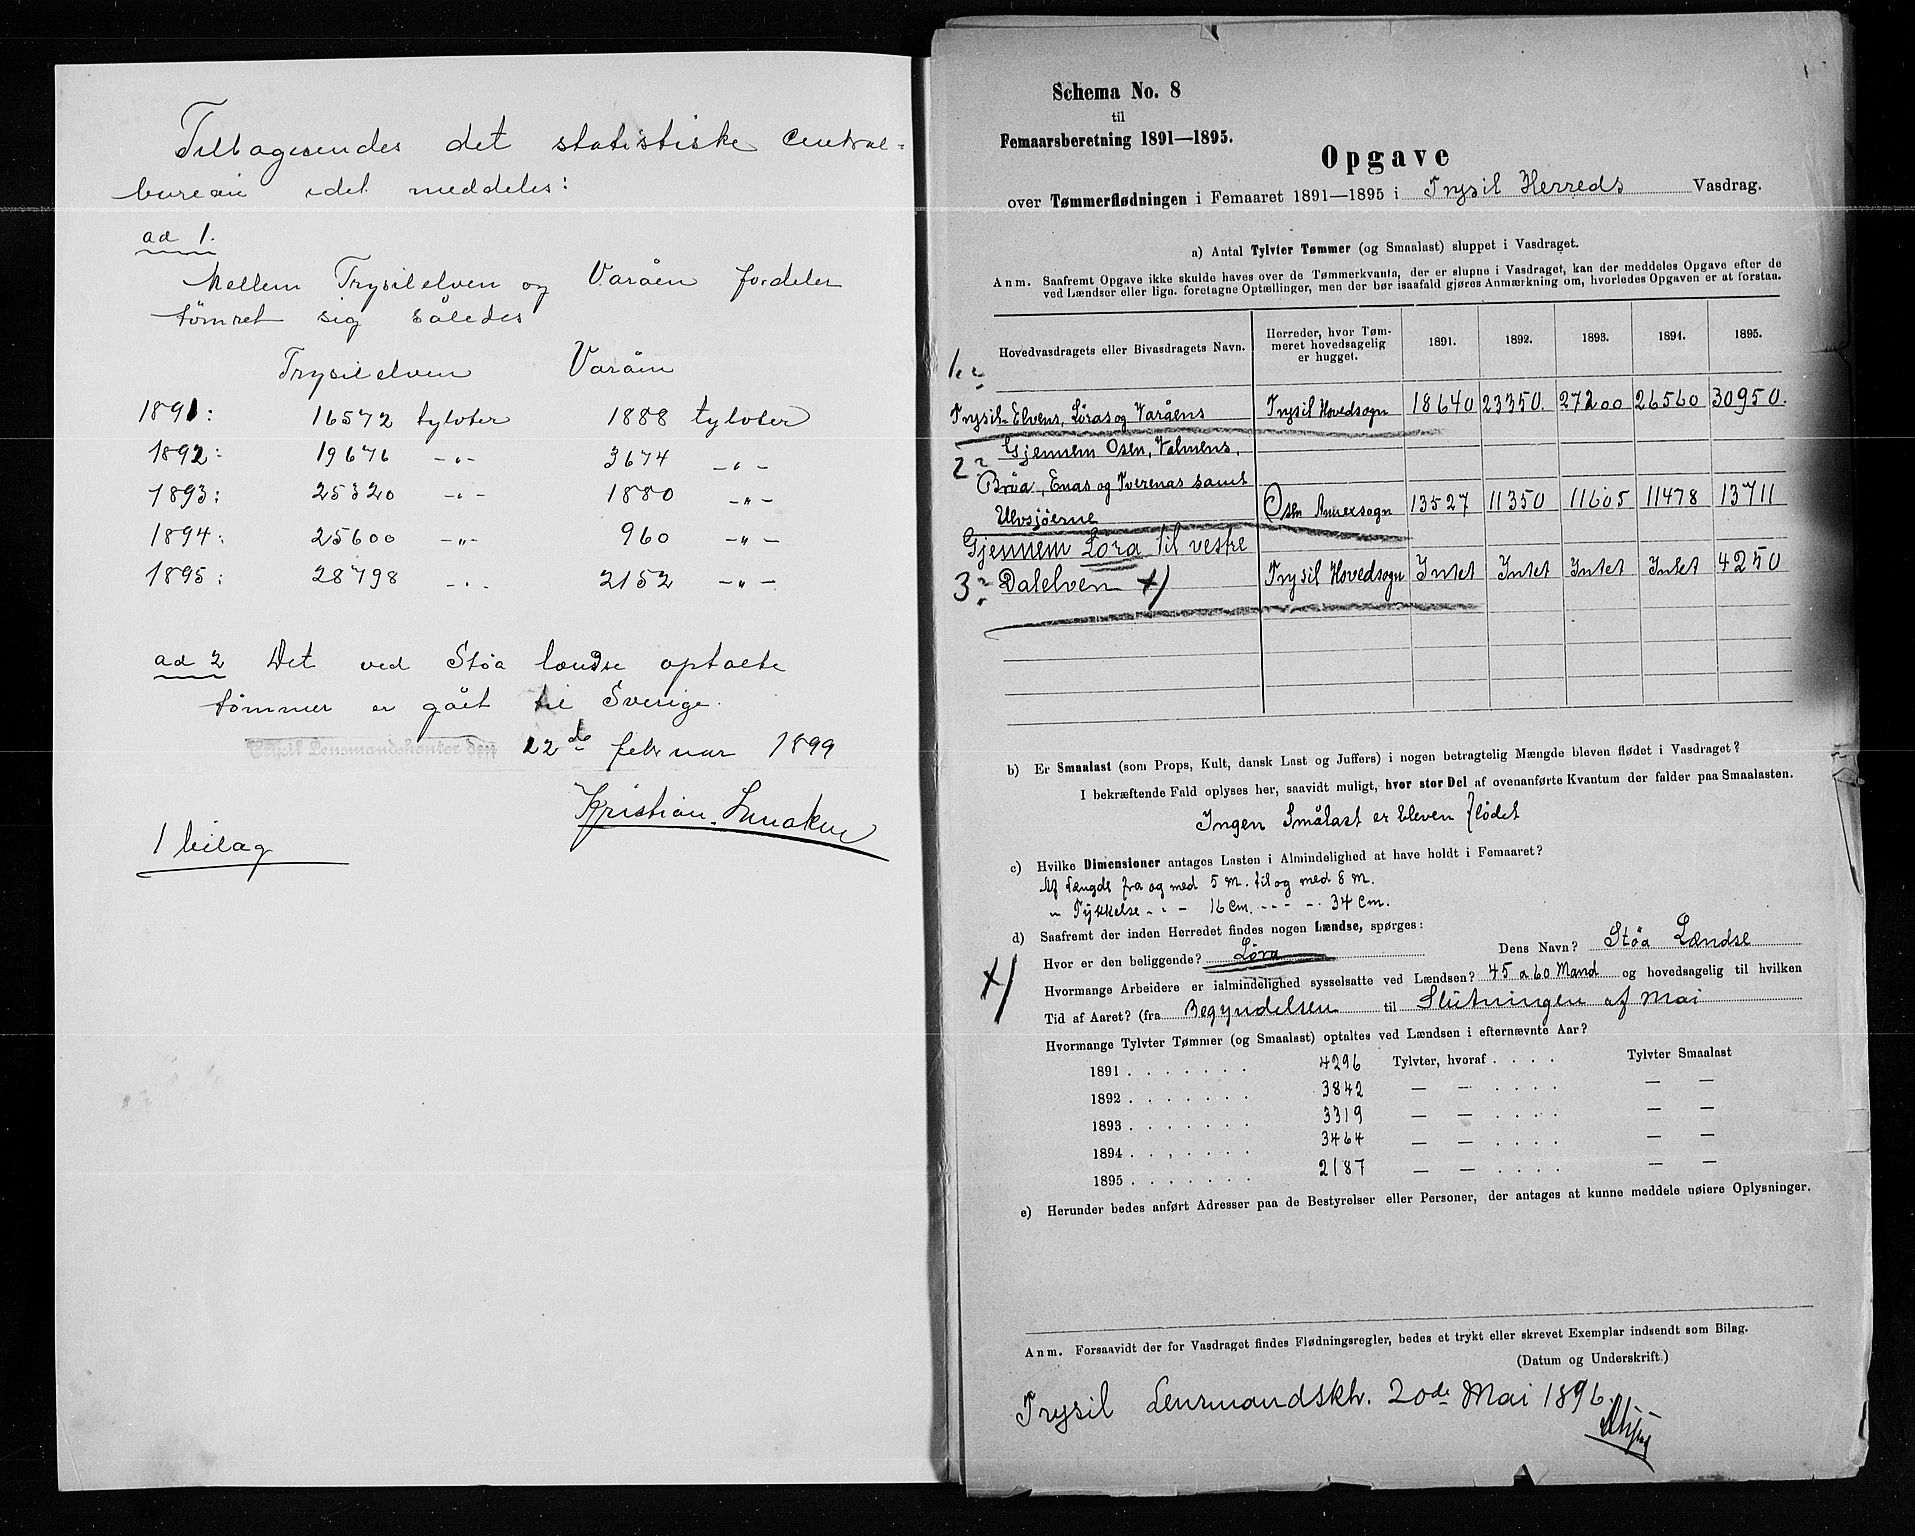 Tilbagesendes det statistiske Central-
bureau idet meddeles:
ad 1.
Mellem Trysilelven og Varåen fordeler
tømret sig således
Trysilelven Varåen
1891: 16572 tylvter 1888 tylvter
1892: 19676 -„- 3674 -„-
1893: 25320 -„- 1880 -„-
1894: 25600 -„- 960 -„-
1895: 28798 -„- 2152 -„-
ad 2 Det ved Støa lændse optalte
tømmer er gået til Sverige.
Trysil Lensmandskontor den 22de februar 1899
Kristian
1 bilag
Schema No. 8
til
Femaarsberetning 1891—1895.
Opgave
over Tømmerflødningen i Femaaret 1891—1895 i Trysil Herreds Vasdrag.
a) Antal Tylvter Tømmer (og Smaalast) sluppet i Vasdraget.
Anm. Saafremt Opgave ikke skulde haves over de Tømmerkvanta, der er slupne i Vasdraget, kan der meddeles Opgave efter de
ved Lændser eller lign. foretagne Optællinger, men der bør isaafald gjøres Anmærkning om, hvorledes Opgaven er at forstaa.
Hovedvasdragets eller Bivasdragets Navn. Herreder, hvor Tøm-
meret hovedsagelig
er hugget. 1891. 1892. 1893. 1894. 1895.
1.?
Trysil-Elvens, Løras og Varåens Trysil Hovedsogn 18640 23350. 27200 26560 30950.
2? Gjennem Osen, Valmens,
Brøa, Enas og Tverenas samt
Ulvsjøerne Osen Annexsogn 13527 11350 11605 11478 13711
Gjennem Løra til vestre
3? Dalelven +) Trysil Hovedsogn Intet Intet Intet Intet 4250
b) Er Smaalast (som Props, Kult, dansk Last og Juffers) i nogen betragtelig Mængde bleven flødet i Vasdraget?
I bekræftende Fald oplyses her, saavidt muligt, hvor stor Del af ovenanførte Kvantum der falder paa Smaalasten.
Ingen Smålast er bleven flødet
c) Hvilke Dimensioner antages Lasten i Almindelighed at have holdt i Femaaret?
Af Længde fra og med 5 M. til og med 8 M.
„ Tykkelse - - - 16 Cm. - - - - 34 Cm.
d) Saafremt der inden Herredet findes nogen Lændse, spørges:
Hvor er den beliggende? Løra Dens Navn? Støa Lændse
+) Hvormange Arbeidere er ialmindelighed sysselsatte ved Lændsen? 45 a 60 Mand og hovedsagelig til hvilken
Tid af Aaret? (fra Begyndelsen til Slutningen af Mai
Hvormange Tylvter Tømmer (og Smaalast) optaltes ved Lændsen i efternævnte Aar?
1891 . . . . . . . 4296 Tylvter, hvoraf . . . . Tylvter Smaalast
1892 . . . . . . . 3842 — — . . . . — —
1893 . . . . . . . 3319 — — . . . . — —
1894 . . . . . . . 3464 — — . . . . — —
1895 . . . . . . . 2187 — — . . . . — —
e) Herunder bedes anført Adresser paa de Bestyrelser eller Personer, der antages at kunne meddele nøiere Oplysninger.
Anm. Forsaavidt der for Vasdraget findes Flødningsregler, bedes et trykt eller skrevet Exemplar indsendt som Bilag.
(Datum og Underskrift.)
Trysil Lensmandskt. 20de Mai 1896.